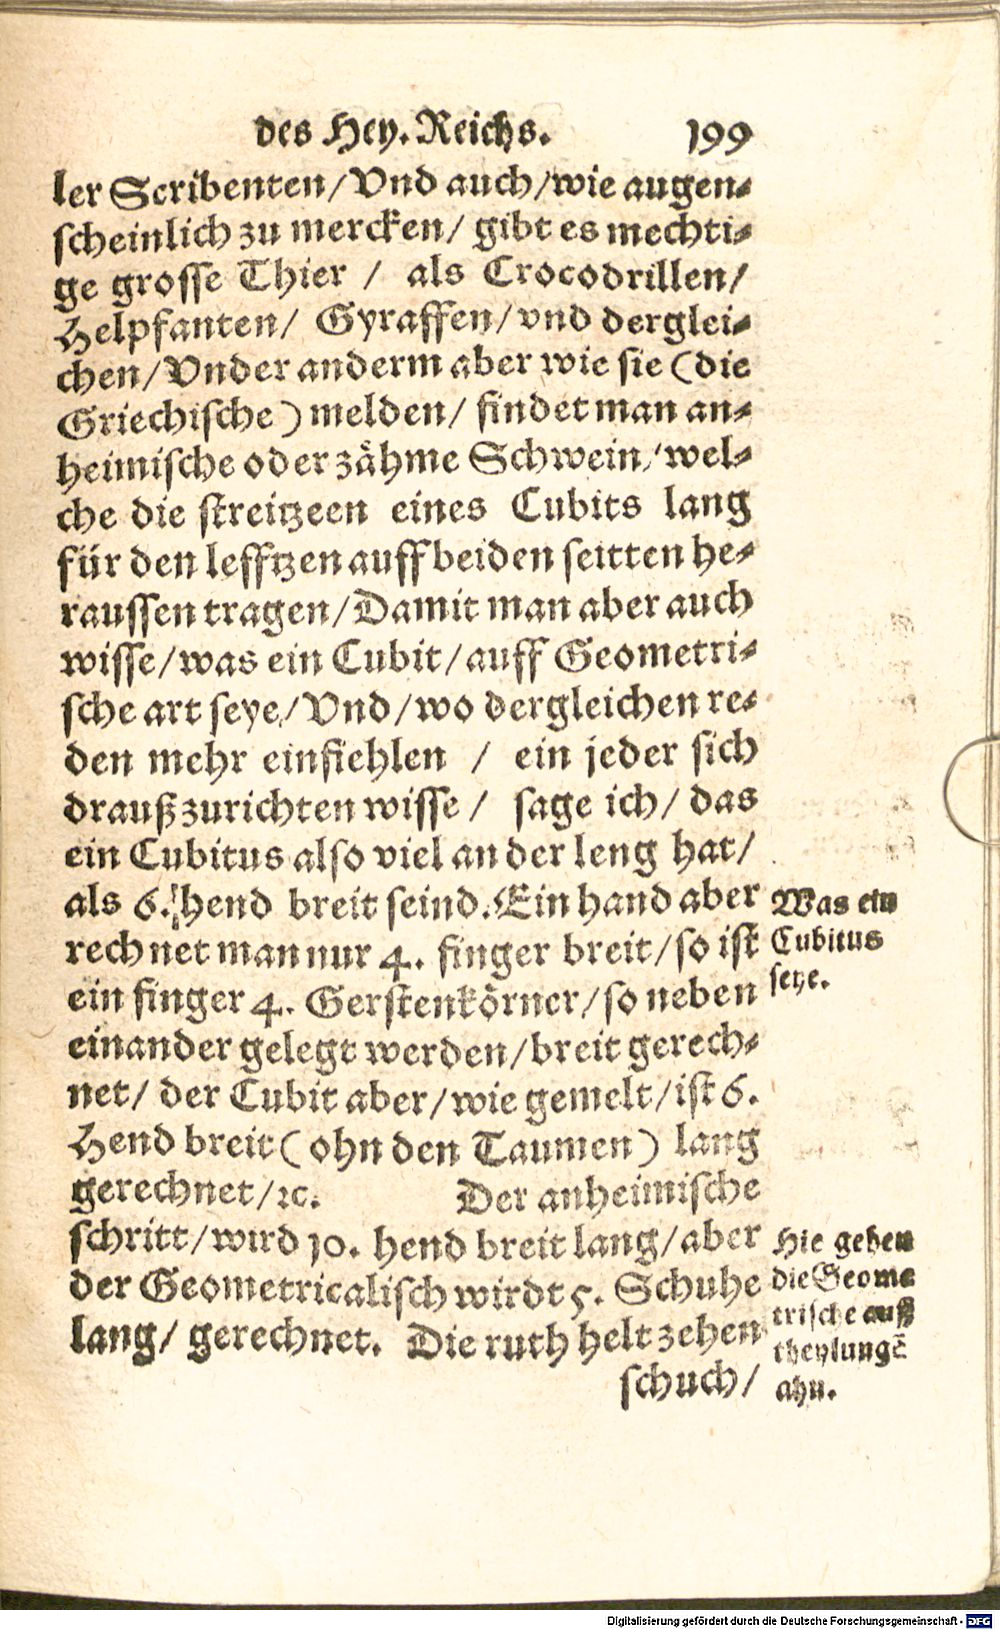 des Hey. Reichs. 199
ler Scribenten/Vnd auch/wie augen-
scheinlich zu mercken/ gibt es mechti-
ge grosse Thier / als Crocodrillen/
Helpfanten/ Gyraffen/vnd derglei-
chen/Vnder anderm aber wie sie (die
Griechische) melden/ findet man an-
heimische oder zåhme Schwein/ wel-
che die streitzeen eines Cubits lang
für den lefftzen auff beiden seitten he-
raussen tragen/Damit man aber auch
wisse/was ein Cubit/auff Geometri-
sche art seye/Vnd/wo dergleichen re-
den mehr einfiehlen / ein jeder sich
drauß zurichten wisse/ sage ich/ das
ein Cubitus also viel an der leng hat/
als 6. hend breit seind. Ein hand aber
rechnet man nur 4. finger breit/so ist
ein finger 4. Gerstenkörner/so neben
einander gelegt werden/breit gerech-
net/ der Cubit aber/wie gemelt/ist 6.
Hend breit (ohn den Taumen) lang
gerechnet/ꝛc. Der anheimische
schritt/wird 10. hend breit lang/aber
der Geometricalisch wirdt 5. Schuhe
lang/ gerechnet. Die ruth helt zehen
schuch/
Was ein
Cubitus
seye.
Hie gehen
die Geome
trische auß
theylungẽ
ahn.
Digitalisierung gefördert durch die Deutsche Forschungsgemeinschaft - DFG